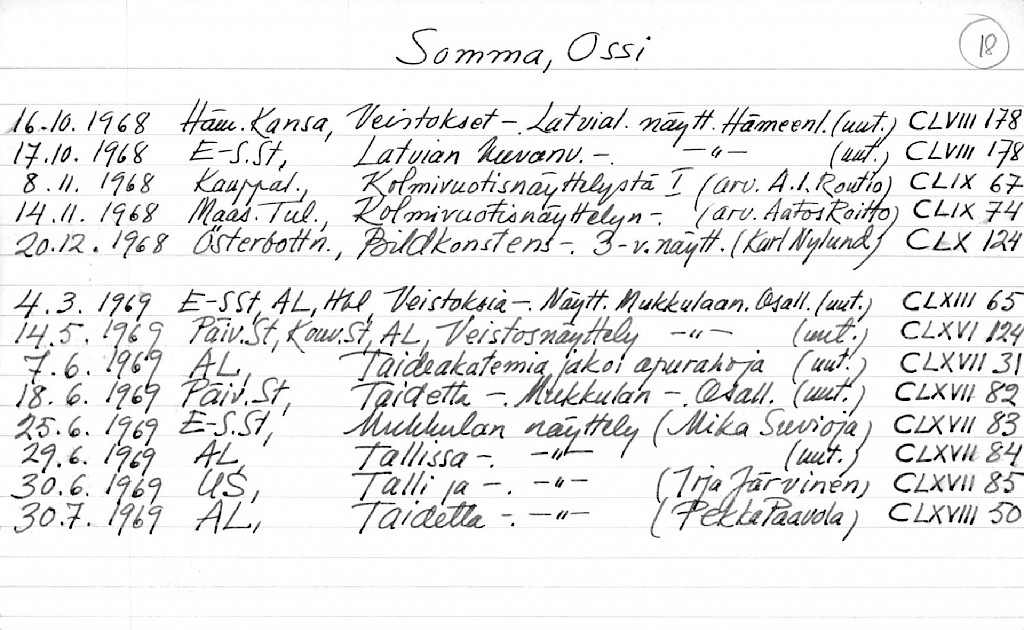 Somma, Ossi
18
16.10. 1968 Häm. Kansa, Veistokset -. Latvial. näytt. Hämeenl. (uut.) CLVIII 178
17.10. 1968 E-S.St, Latvian kuvanv. -. -"- (uut.) CLVIII 178
8.11. 1968 Kauppal., Kolmivuotisnäyttelystä I (arv. A.I. Routio) CLIX 67
14.11. 1968 Maas. Tul., Kolmivuotisnäyttelyn -. (arv. Aatos Roitto) CLIX 74
20.12. 1968 Österbottn., Bildkonstens -. 3-v. näytt. (Karl Nylund) CLX 124
4.3. 1969 E-SSt, AL, Hbl, Veistoksia -. Näytt. Mukkulaan. Osall. (uut.) CLXIII 65
14.5. 1969 Päiv.St, Kouv.St, AL, Veistosnäyttely -"- (uut.) CLXVI 124
7.6. 1969 AL, Taideakatemia jakoi apurahoja (uut.) CLXVII 31
18.6. 1969 Päiv.St, Taidetta -. Mukkulan -. Osall. (uut.) CLXVII 82
25.6. 1969 E-S.St, Mukkulan näyttely (Mika Suvioja) CLXVII 83
29.6. 1969 AL, Tallissa -. -"- (uut.) CLXVII 84
30.6. 1969 US, Talli ja -. -"- (Irja Järvinen) CLXVII 85
30.7. 1969 AL, Taidetta -. -"- (Pekka Paavola) CLXVIII 50